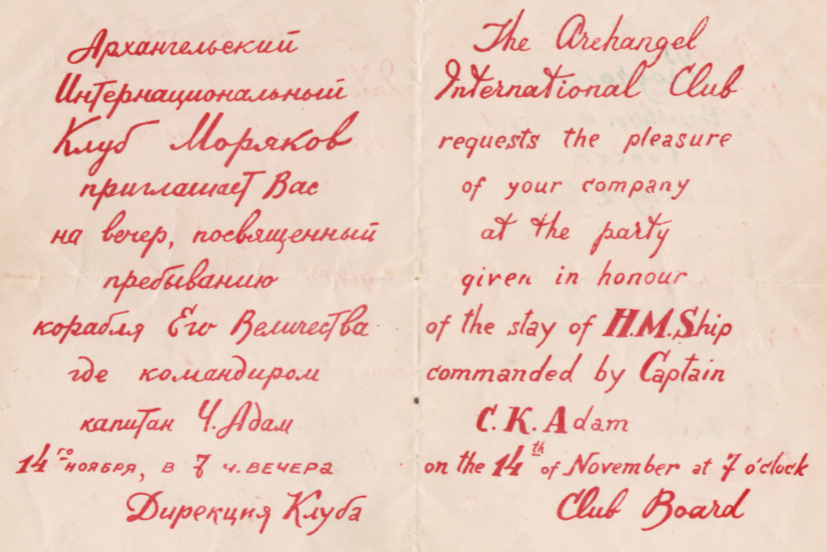 Архангельский
Интернациональный
Клуб Моряков
приглашает Вас
на вечер, посвященный
пребыванию
корабля Его Величества
где командиром
капитан Ч. Адам
14го ноября, в 7 ч. вечера
Дирекция Клуба
The Archangel
International Club
requests the pleasure
of your company
at the party
given in honour
of the stay of H.M.Ship
commanded by Captain
C.K. Adam
on the 14th of November at 7 o'clock
Club Board